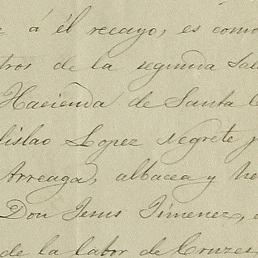 á él recayo, es como
tros de la segunda Sal
Hacienda de Santa C
dislao Lopez Negrete y
Arreaga, albacea y he
Don Jesus Jimenez,
de la labor de Cruzes